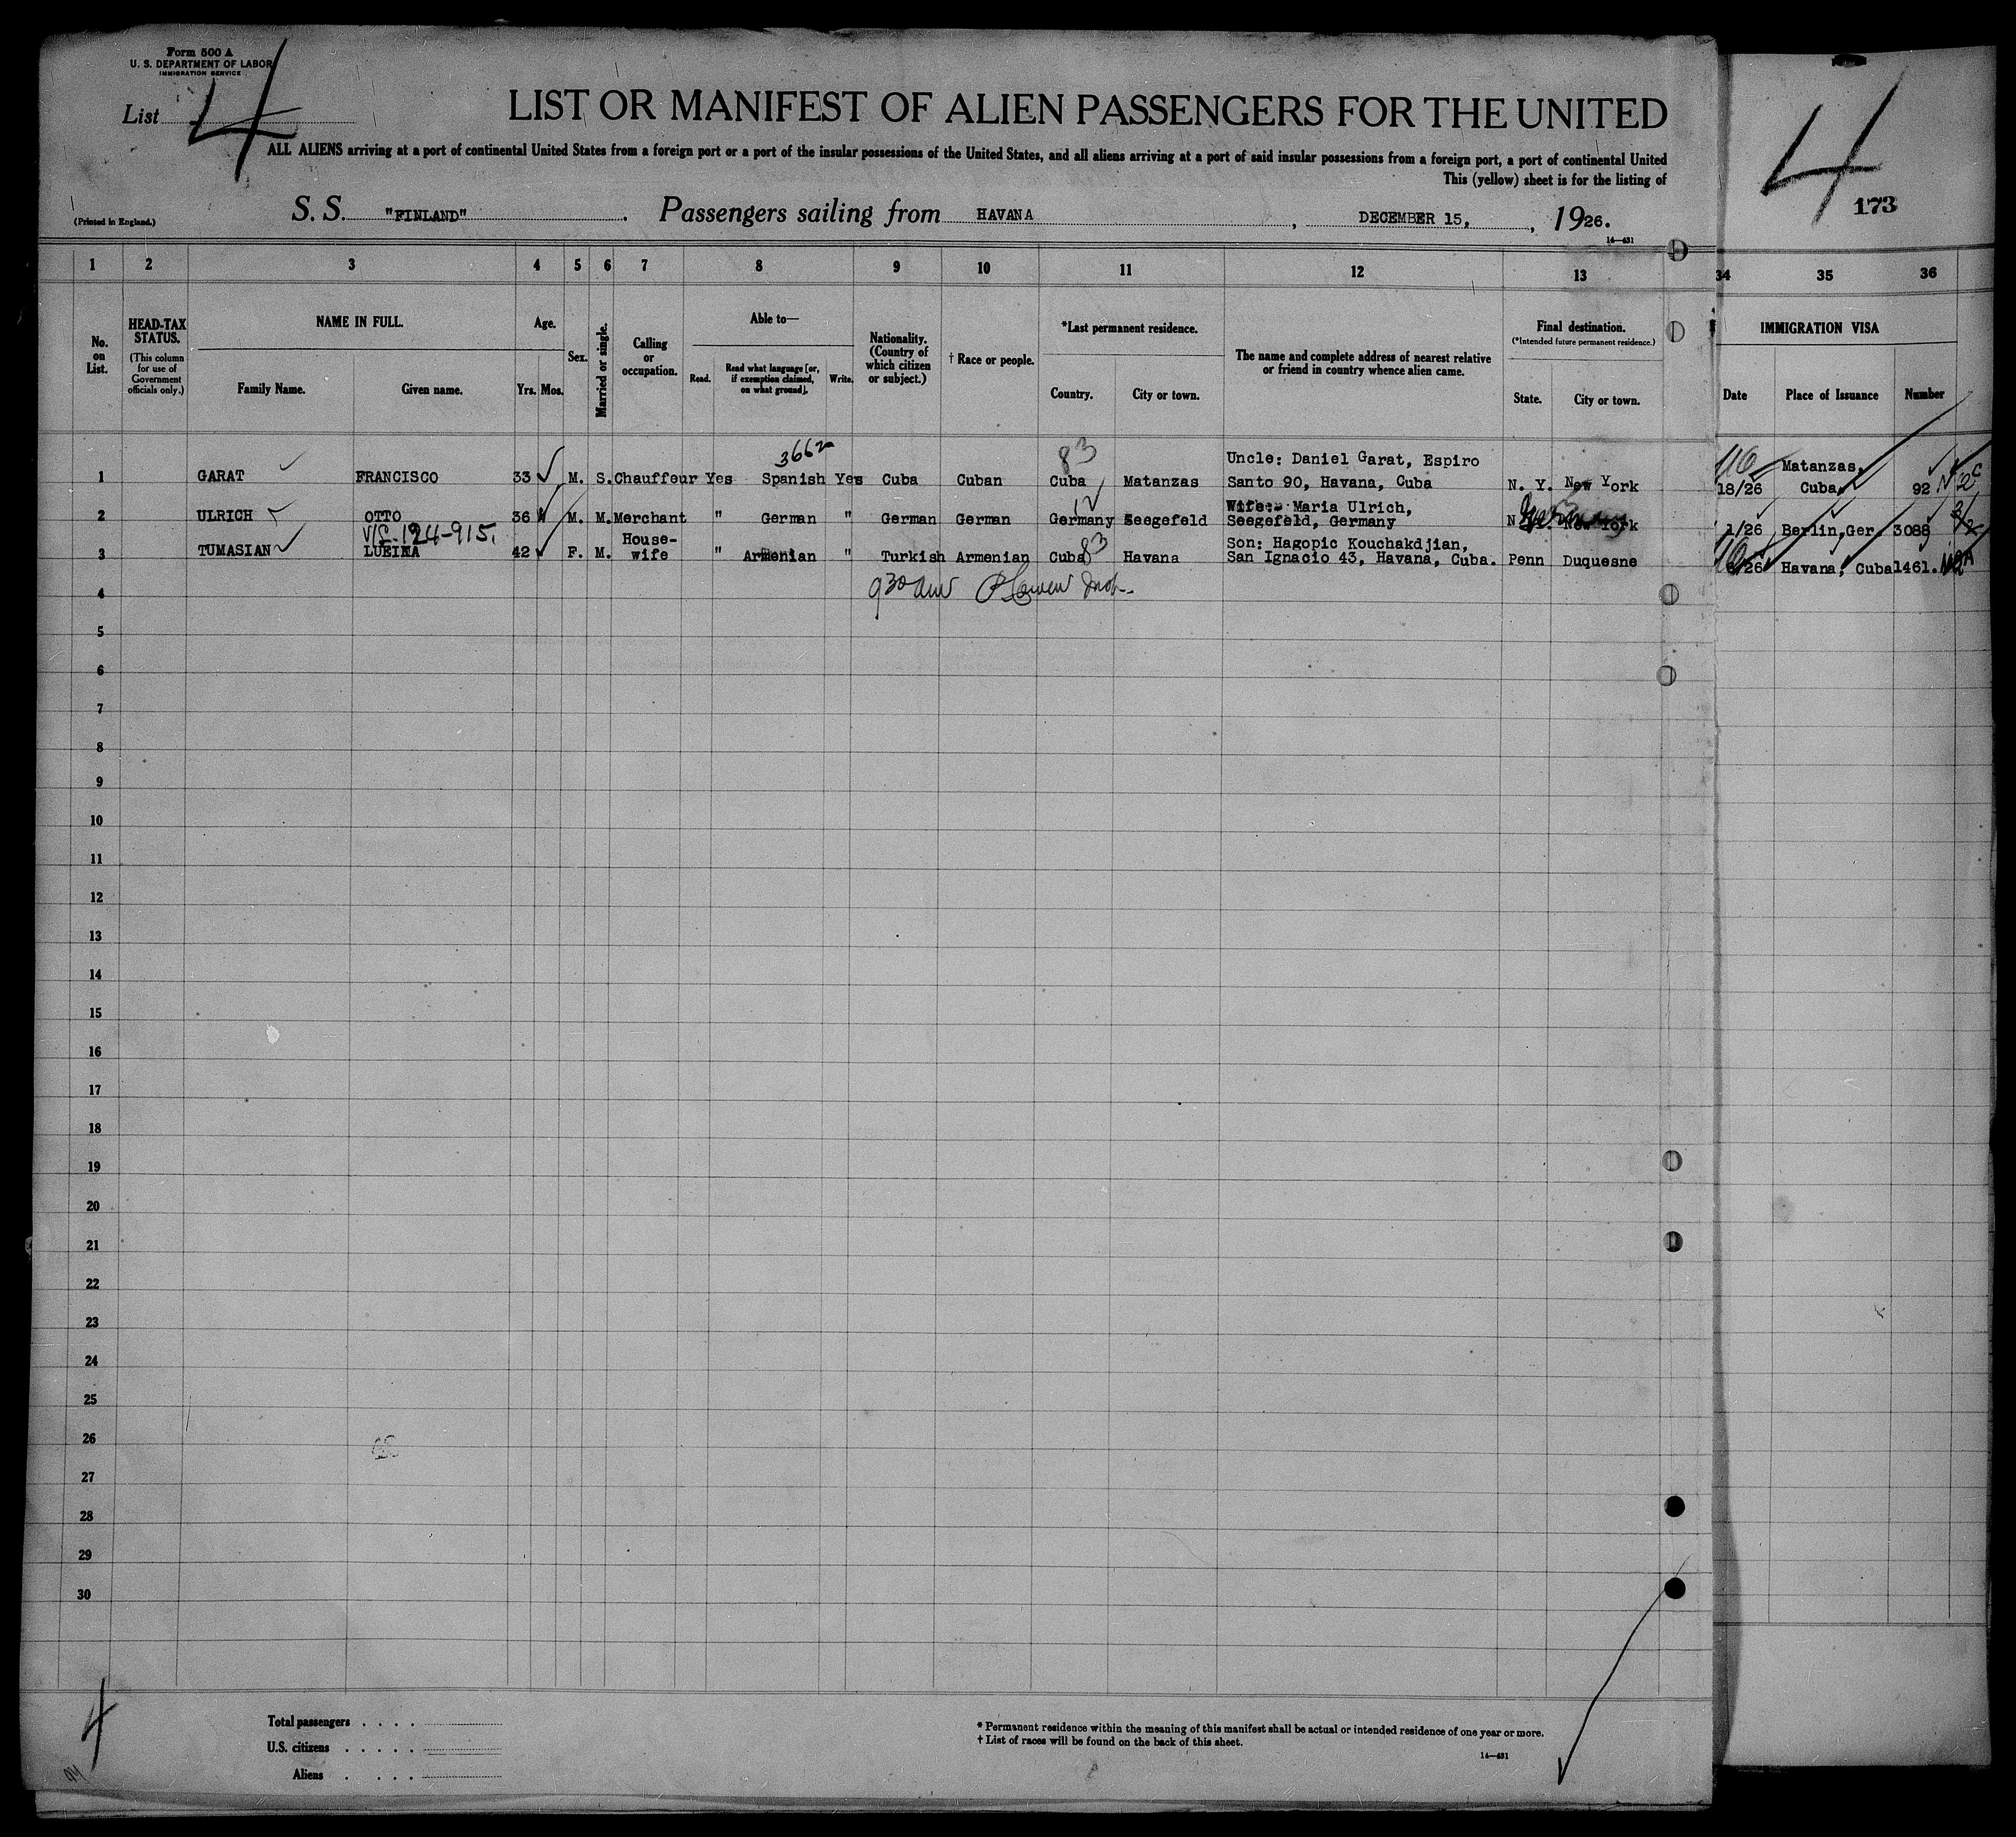 Form 500 A
U. S. DEPARTMENT OF LABOR
IMMIGRATION SERVICE
List 4
LIST OR MANIFEST OF ALIEN PASSENGERS FOR THE UNITED
ALL ALIENS arriving at a port of continental United States from a foreign port or a port of the insular possessions of the United States, and all aliens arriving at a port of said insular possessions from a foreign port, a port of continental United
This (yellow) sheet is for the listing of
(Printed in England.)
S. S. "FINLAND" . Passengers sailing from HAVANA , DECEMBER 15, , 1926.
14—431
4
173
1 2 3 4 5 6 7 8 9 10 11 12 13 34 35 36
No. on List.
HEAD-TAX STATUS.
(This column for use of Government officials only.)
NAME IN FULL.
Family Name. Given name.
Age.
Yrs. Mos.
Sex.
Married or single.
Calling or occupation.
Able to—
Read. Read what language [or, if exemption claimed, on what ground]. Write.
Nationality. (Country of which citizen or subject.)
† Race or people.
*Last permanent residence.
Country. City or town.
The name and complete address of nearest relative or friend in country whence alien came.
Final destination.
(*Intended future permanent residence.)
State. City or town.
IMMIGRATION VISA
Date Place of Issuance Number
3662 83
1 GARAT FRANCISCO 33 M. S. Chauffeur Yes Spanish Yes Cuba Cuban Cuba Matanzas Uncle: Daniel Garat, Espiro Santo 90, Havana, Cuba N. Y. New York 18/26 Matanzas, Cuba 92
12
2 ULRICH OTTO 36 M. M. Merchant " German " German German Germany Seegefeld Wife: Maria Ulrich, Seegefeld, Germany New York 1/26 Berlin, Ger. 3088
V/C-124-915.
3 TUMASIAN 42 F. M. House-wife " Armenian " Turkish Armenian Cuba 83 Havana Son: Hagopic Kouchakdjian, San Ignacio 43, Havana, Cuba. Penn Duquesne 26 Havana, Cuba 1461.
930
4
5
6
7
8
9
10
11
12
13
14
15
16
17
18
19
20
21
22
23
24
25
26
27
28
29
30
4
Total passengers . . . .
U.S. citizens . . . . .
Aliens . . . . .
* Permanent residence within the meaning of this manifest shall be actual or intended residence of one year or more.
† List of races will be found on the back of this sheet.
14—431